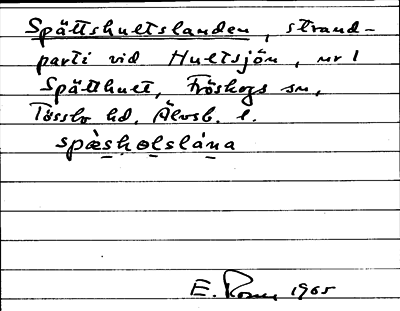 Spättshultslanden, strand-
parti vid Hultsjön, nr 1
Spätthult, Fröskogs sn,
Tössbo hd, Älvsb. l.
spæ̀sholslána
E. Rosu 1965